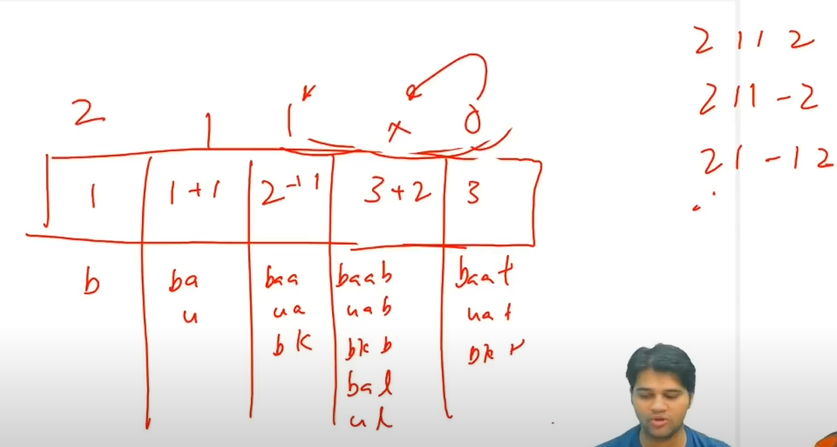 2 1 1 x 0
1 1+1 2-11 3+2 3
b ba baa baab baat
u ua uab uat
bk bkb bkt
bal
ul
2 1 1 2
2 1 1 -2
2 1 -1 2